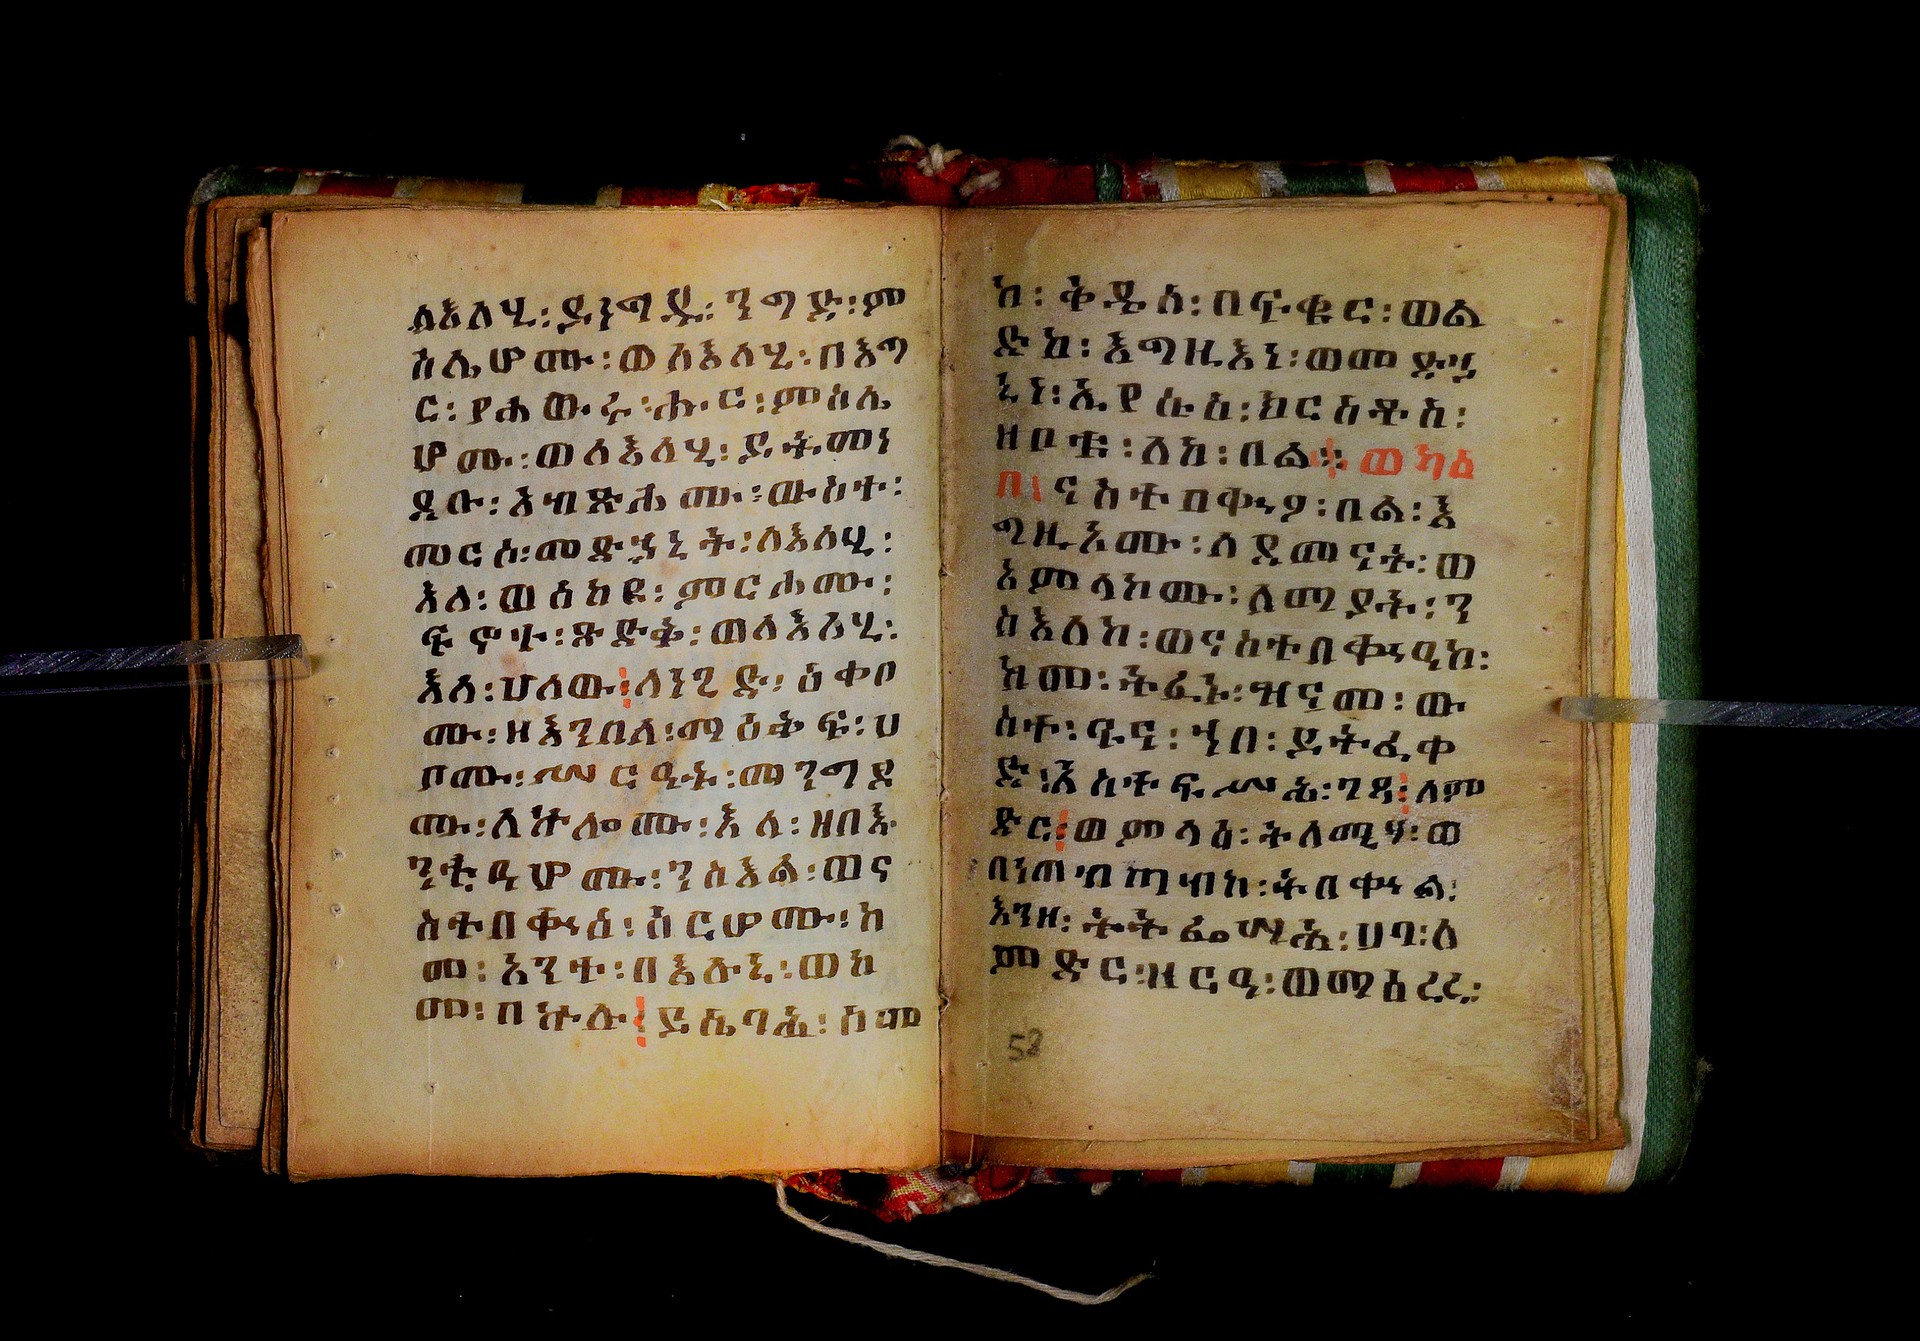 ለእለሂ፡ ይነግዱ፡ ንግድ፡ ም
ስሌሆሙ፡ ወለእለሂ፡ በእግ
ር፡ የሐውሩ፡ ሑር፡ ምስሌ
ሆሙ፡ ወለእለሂ፡ ይትመነ
ደቡ፡ አብጽሖሙ፡ ውስተ፡
መርሶ፡ መድኃኒት፡ ለእለሂ፡
እለ፡ ወሰከዩ፡ ምርሖሙ፡
ፍኖተ፡ ጽድቅ፡ ወለእለሂ፡
እለ፡ ሀለው፡ ለነጊድ፡ ዕቀቦ
ሙ፡ ዘእንበለ፡ ማዕቅፍ፡ ሀ
ቦሙ፡ ሥርዓት፡ መንግደ
ሙ፡ ለኵሎሙ፡ እለ፡ ዘበእ
ንቲኣሆሙ፡ ንስእል፡ ወና
ስተበቍዕ፡ ስርሆሙ፡ ከ
መ፡ አንተ፡ በእሉኒ፡ ወከ
መ፡ በኵሉ፡ ይሴባሕ፡ ስመ
ከ፡ ቅዱስ፡ በፍቁር፡ ወል
ድከ፡ እግዚእነ፡ ወመድኃ
ኒነ፡ ኢየሱስ፡ ክርስቶስ፡
ዘቦቱ፡ ለከ፡ በል፡ ወካዕ
በ፡ ናስተበቍዕ፡ በል፡ እ
ግዚኦሙ፡ ለደመናት፡ ወ
አምላኮሙ፡ ለማያት፡ ን
ስእለከ፡ ወናስተበቍዓከ፡
ከመ፡ ትፈኑ፡ ዝናመ፡ ው
ስተ፡ ዓና፡ ኀበ፡ ይትፈቀ
ድ፡ አስተፍሥሕ፡ ገጻ፡ ለም
ድር፡ ወምላዕ፡ ትለሚሃ፡ ወ
በነጠብጣብከ፡ ትበቍል፡
እንዘ፡ ትትፌሣሕ፡ ሀባ፡ ለ
ምድር፡ ዝርዓ፡ ወማዕረረ፡
58